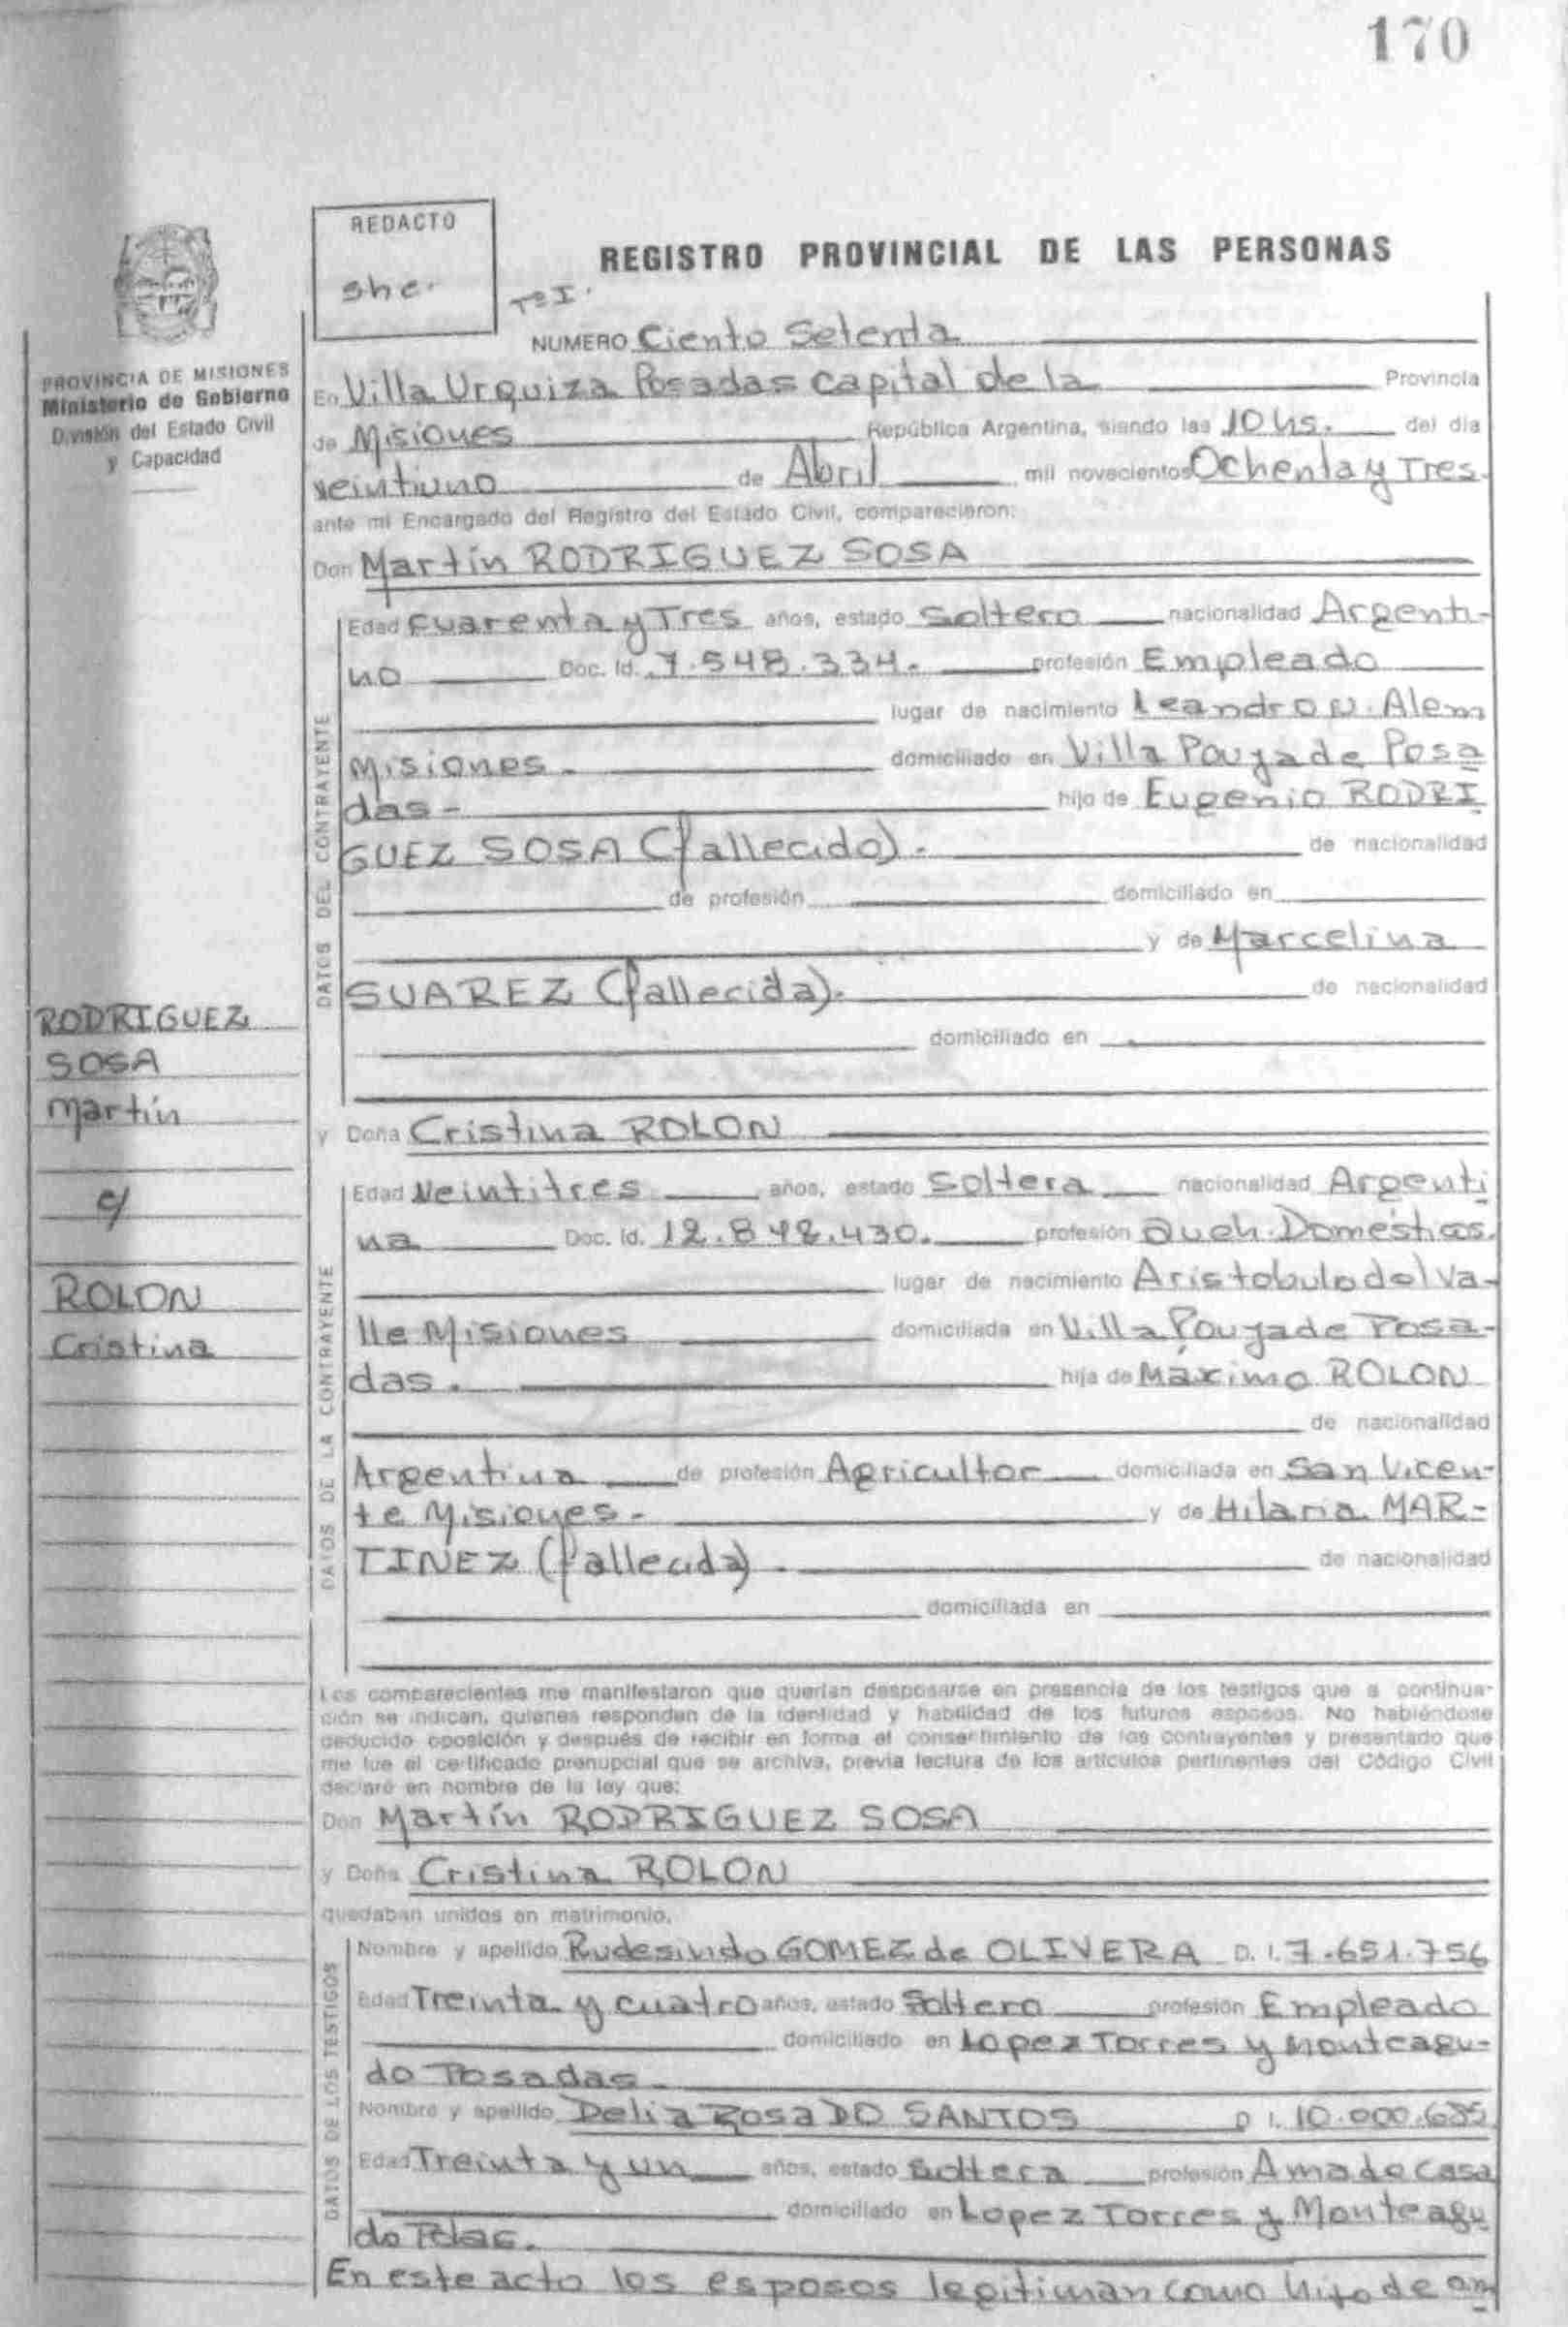 170
REDACTO
she.
REGISTRO PROVINCIAL DE LAS PERSONAS
Tº I.
NUMERO Ciento Setenta
PROVINCIA DE MISIONES
Ministerio de Gobierno
División del Estado Civil
y Capacidad
En Villa Urquiza Posadas capital de la Provincia
de Misiones República Argentina, siendo las 10 hs. del día
veintiuno de Abril mil novecientos Ochenta y Tres.
ante mi Encargado del Registro del Estado Civil, comparecieron:
Don Martín RODRIGUEZ SOSA
DATOS DEL CONTRAYENTE
Edad Cuarenta y Tres años, estado Soltero nacionalidad Argenti-
no Doc. Id. 7.548.334. profesión Empleado
lugar de nacimiento Leandro N. Alem
Misiones. domiciliado en Villa Poujade Posa
das- hijo de Eugenio RODRI
GUEZ SOSA (fallecido). de nacionalidad
de profesión domiciliado en
y de Marcelina
SUAREZ (fallecida). de nacionalidad
domiciliado en
RODRIGUEZ
SOSA
Martín
c/
ROLON
Cristina
y Doña Cristina ROLON
DATOS DE LA CONTRAYENTE
Edad Veintitres años, estado Soltera nacionalidad Argenti
na Doc. Id. 12.848.430. profesión Queh. Domésticos.
lugar de nacimiento Aristobulo del Va-
lle Misiones domiciliada en Villa Poujade Posa-
das. hija de Máximo ROLON
de nacionalidad
Argentina de profesión Agricultor domiciliada en San Vicen-
te Misiones- y de Hilaria MAR-
TINEZ (fallecida) . de nacionalidad
domiciliada en
Los comparecientes me manifestaron que querían desposarse en presencia de los testigos que a continua-
ción se indican, quienes responden de la identidad y habilidad de los futuros esposos. No habiéndose
deducido oposición y después de recibir en forma el consertimiento de los contrayentes y presentado que
me fue el certificado prenupcial que se archiva, previa lectura de los artículos pertinentes del Código Civil
declaré en nombre de la ley que:
Don Martín RODRIGUEZ SOSA
y Doña Cristina ROLON
quedaban unidos en matrimonio.
DATOS DE LOS TESTIGOS
Nombre y apellido Rudesindo GOMEZ de OLIVERA D. I. 7.651.756
Edad Treinta y cuatro años, estado Soltero profesión Empleado
domiciliado en Lopez Torres y Monteagu-
do Posadas.
Nombre y apellido Delia Rosa DO SANTOS D I. 10.000.635
Edad Treinta y un años, estado Soltera profesión Ama de Casa
domiciliado en Lopez Torres y Monteagu
do Pdas.
En este acto los esposos legitiman como hijo de am